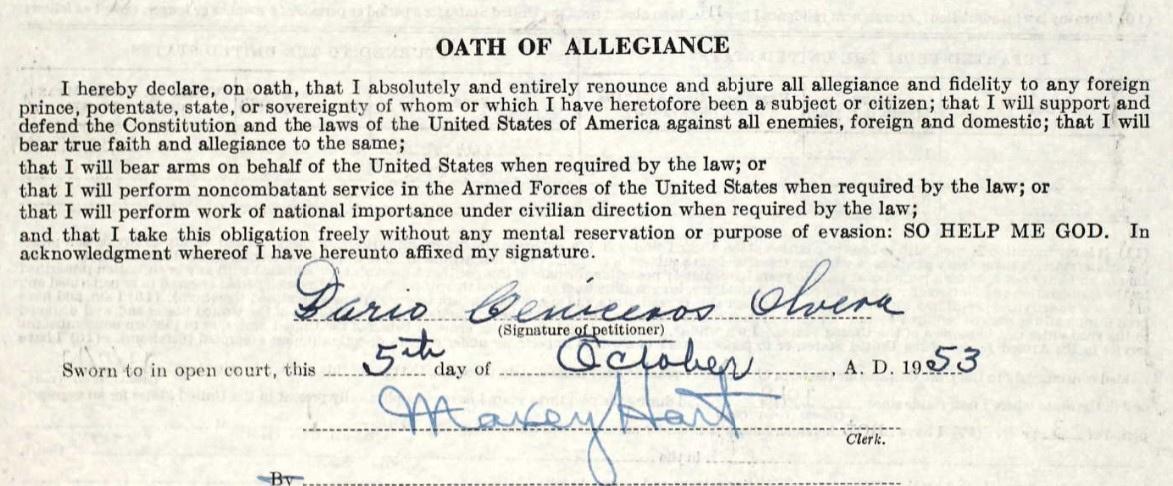 OATH OF ALLEGIANCE
I hereby declare, on oath, that I absolutely and entirely renounce and abjure all allegiance and fidelity to any foreign
prince, potentate, state, or sovereignty of whom or which I have heretofore been a subject or citizen; that I will support and
defend the Constitution and the laws of the United States of America against all enemies, foreign and domestic; that I will
bear true faith and allegiance to the same;
that I will bear arms on behalf of the United States when required by the law; or
that I will perform noncombatant service in the Armed Forces of the United States when required by the law; or
that I will perform work of national importance under civilian direction when required by the law;
and that I take this obligation freely without any mental reservation or purpose of evasion: SO HELP ME GOD. In
acknowledgment whereof I have hereunto affixed my signature.
Dario Ceniceros Olvera
(Signature of petitioner)
Sworn to in open court, this 5th day of October, A. D. 1953
Maxey Hart
Clerk.
By